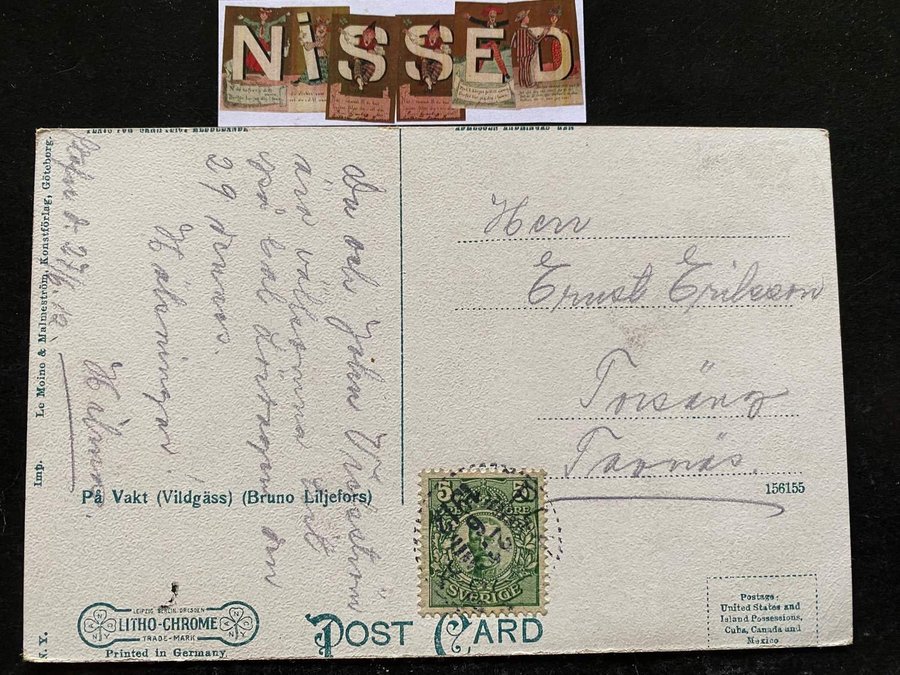 NiSSED
Du och John Wieström
äro välkomna hit
på bal Lördagen den
29 dennes.
Hälsningar!
Hilmer.
Herr
Ernst Eriksson
Torsäng
Tavnäs.
På Vakt (Vildgäss) (Bruno Liljefors)
156155
Imp. Le Moine & Malmeström, Konstförlag, Göteborg.
5 5
ÖRE
SVERIGE
LEIPZIG BERLIN DRESDEN
LITHO-CHROME
TRADE-MARK
Printed in Germany
N.Y.
POST CARD
Postage:
United States and
Island Possessions,
Cuba, Canada and
Mexico